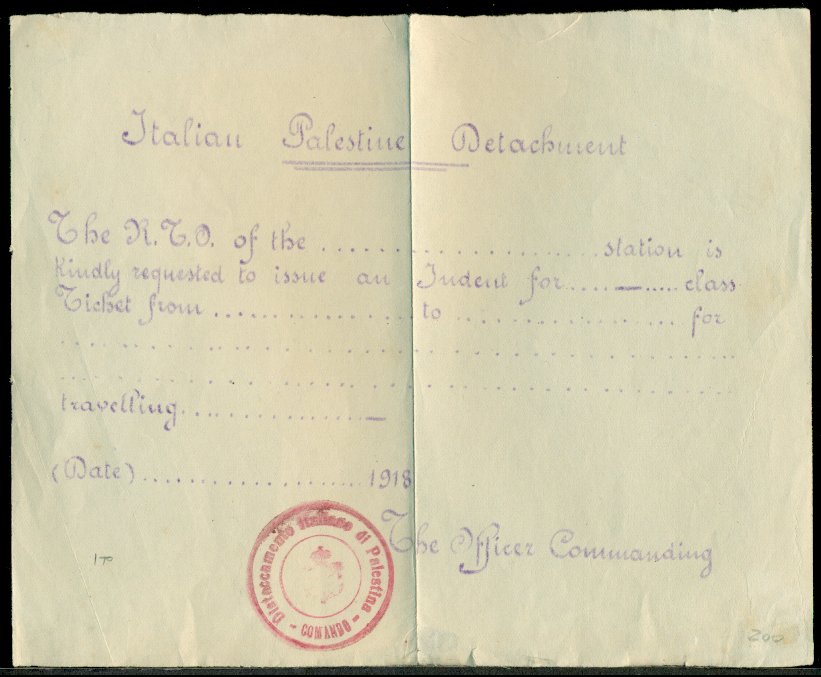 Italian Palestine Detachment
The R.T.O. of the .................... station is
kindly requested to issue an Indent for....—.....class
Ticket from .................. to .................... for
........................................
........................................
travelling..................—
(Date)....................1918
The Officer Commanding
Distaccamento Italiano di Palestina
- COMANDO -
200